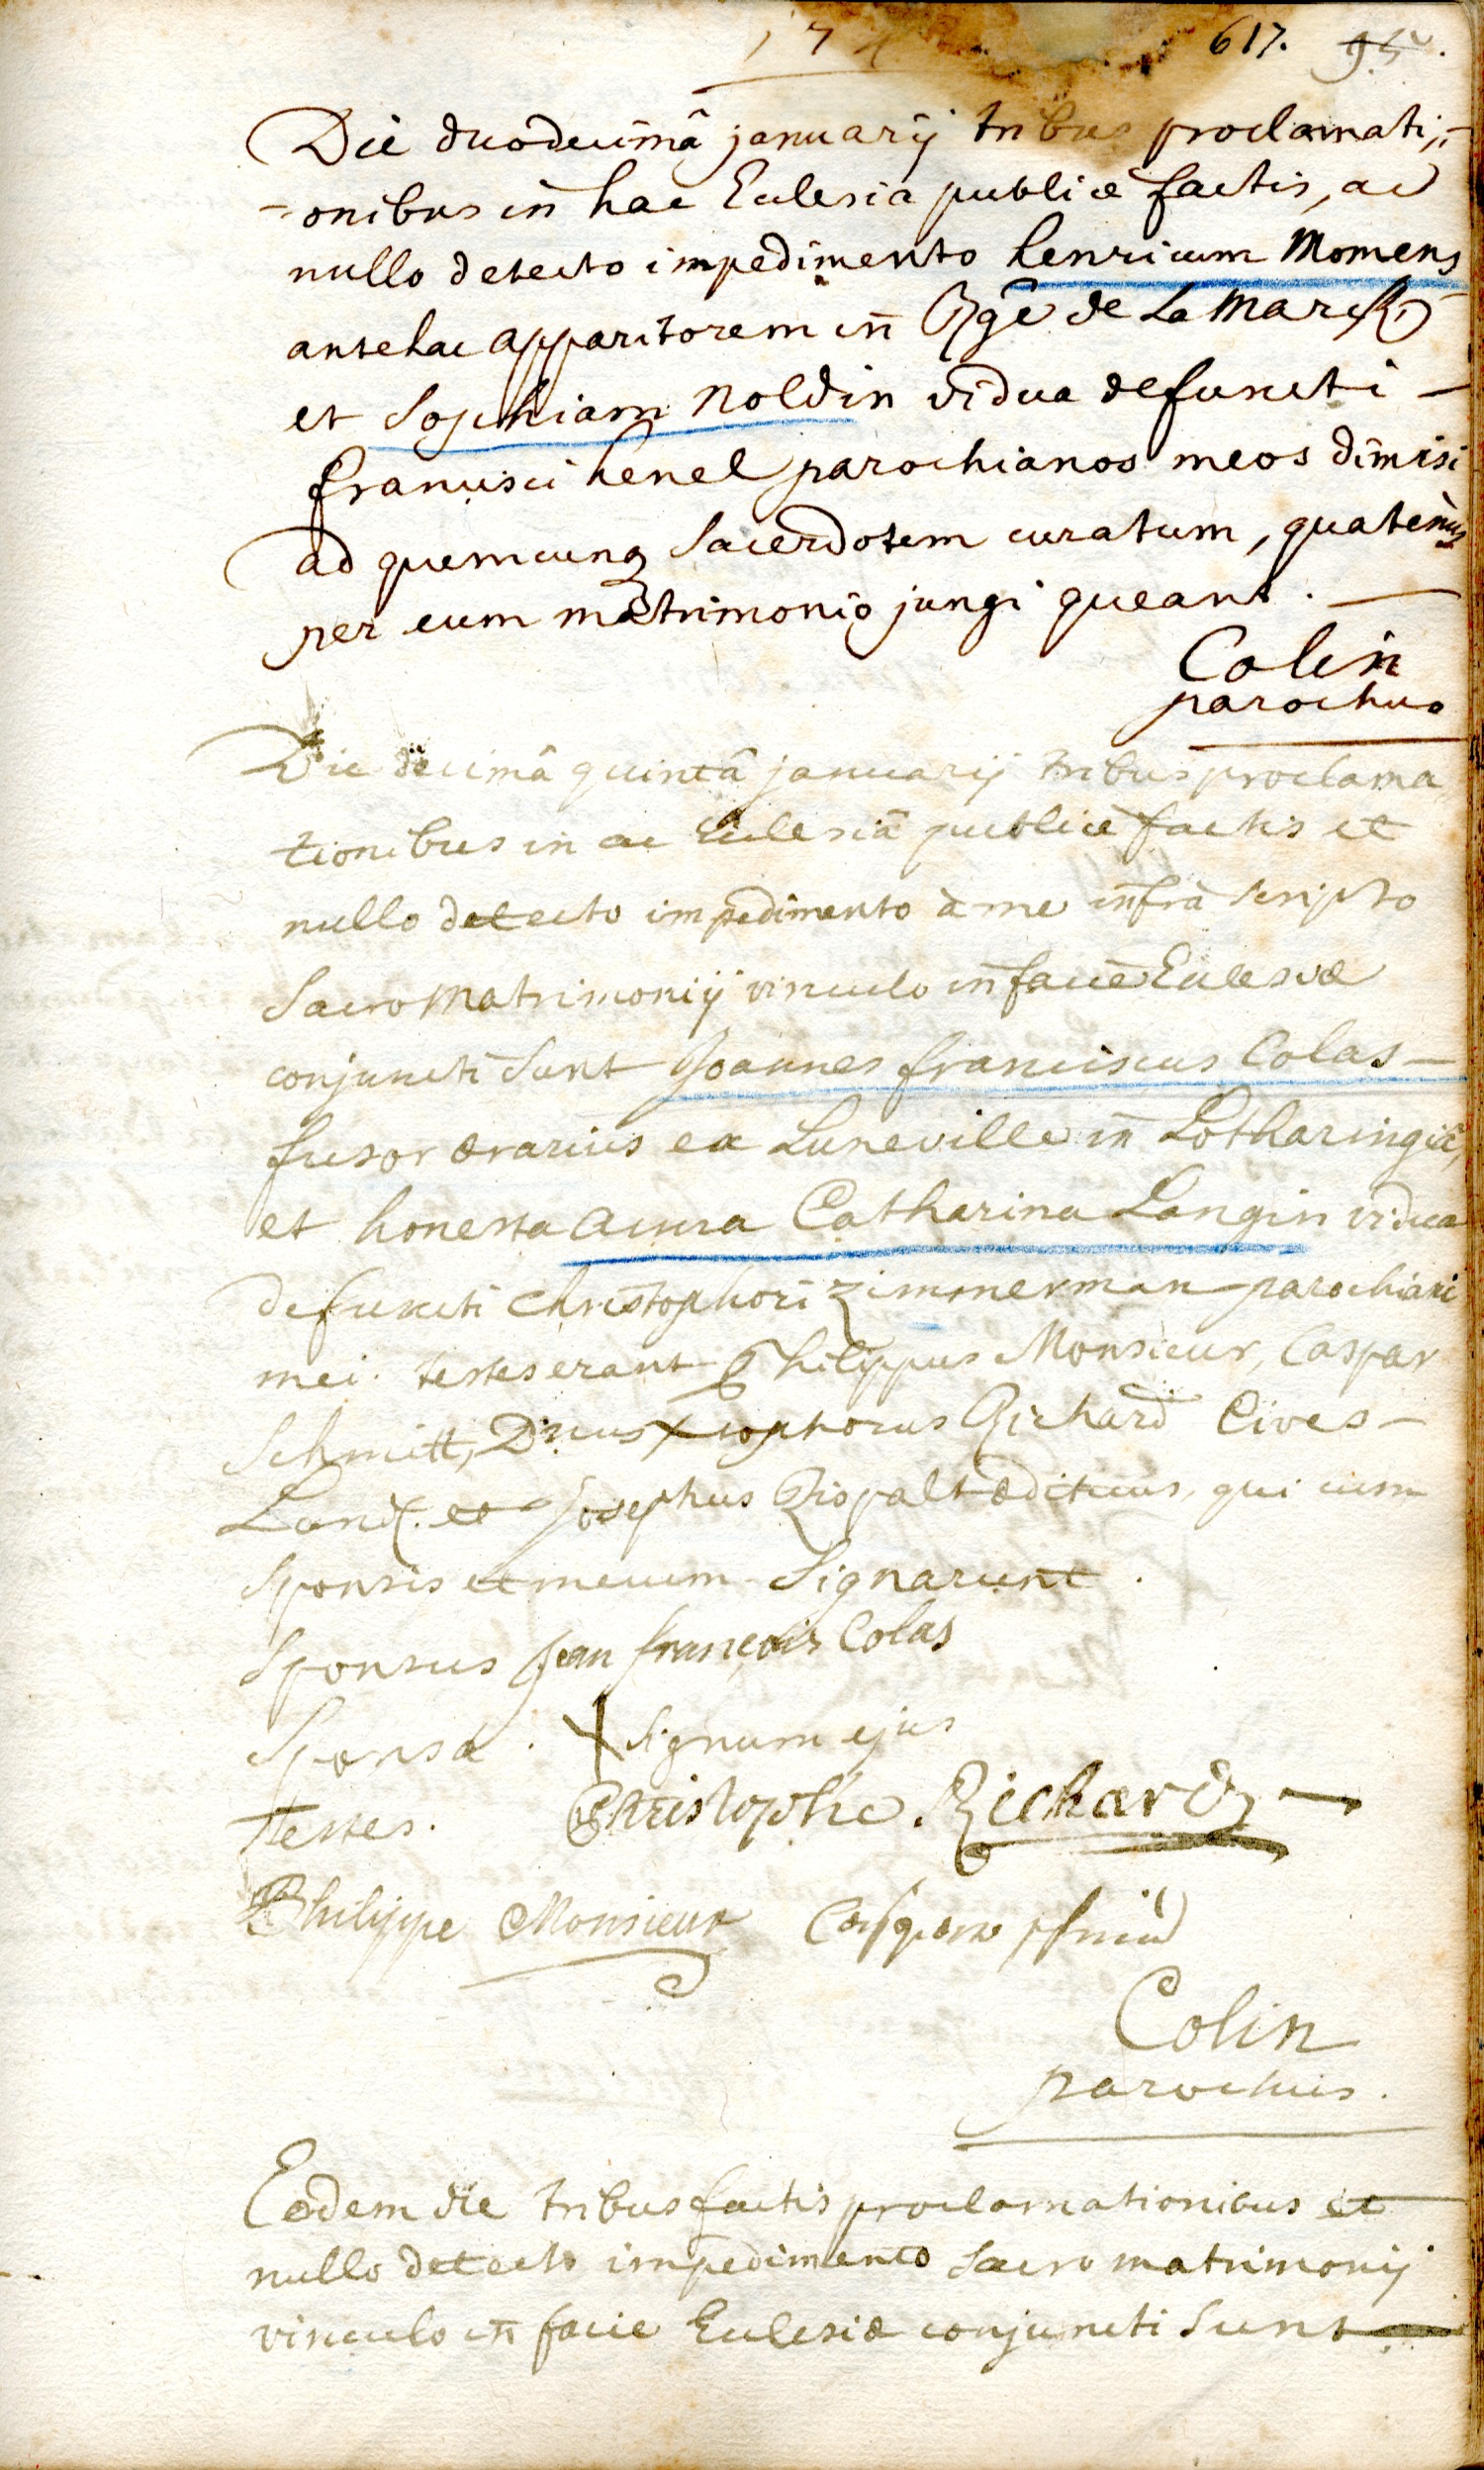 174 617. 95.
Die duodecimâ januarij tribus proclamati,,
-onibus in hac Ecclesia publicè factis, ac
nullo detecto impedimento henricum Momens
antehac apparitorem in Rgē de La Marck
et Sophiam Noldin vidua defuncti -
francisci henel parochianos meos dimisi
ad quemcunq sacerdotem curatum, quatenùs
per eum matrimonio jungi queant. —
Colin
parochus
Die decimâ quintâ januarij tribus proclama
tionibus in ac Ecclesiâ publicè factis et
nullo detecto impedimento à me infrà scripto
Sacro Matrimonij vinculo in faciē Ecclesiæ
conjuncti sunt Joannes franciscus Colas —
fusor ærarius ex Luneville in Lotharingiâ,
et honesta Anna Catharina Langin vidua
defuncti Christophori Zimmerman parochiani
mei. testes erant Philippus Monsieur, Caspar
Schmitt, Dnus Xtophorus Richard Cives —
Land. et Josephus Rispalt ædituus, qui cum
Sponsis et mecum Signarunt.
Sponsus jean françois Colas
Sponsa. X Signum ejus
Testes. Christophe. Richard —
Philippe Monsieur Caspar
Colin
parochus.
Eodem die tribus factis proclamationibus et
nullo detecto impedimento sacro matrimonij
vinculo in facie Ecclesiæ conjuncti sunt